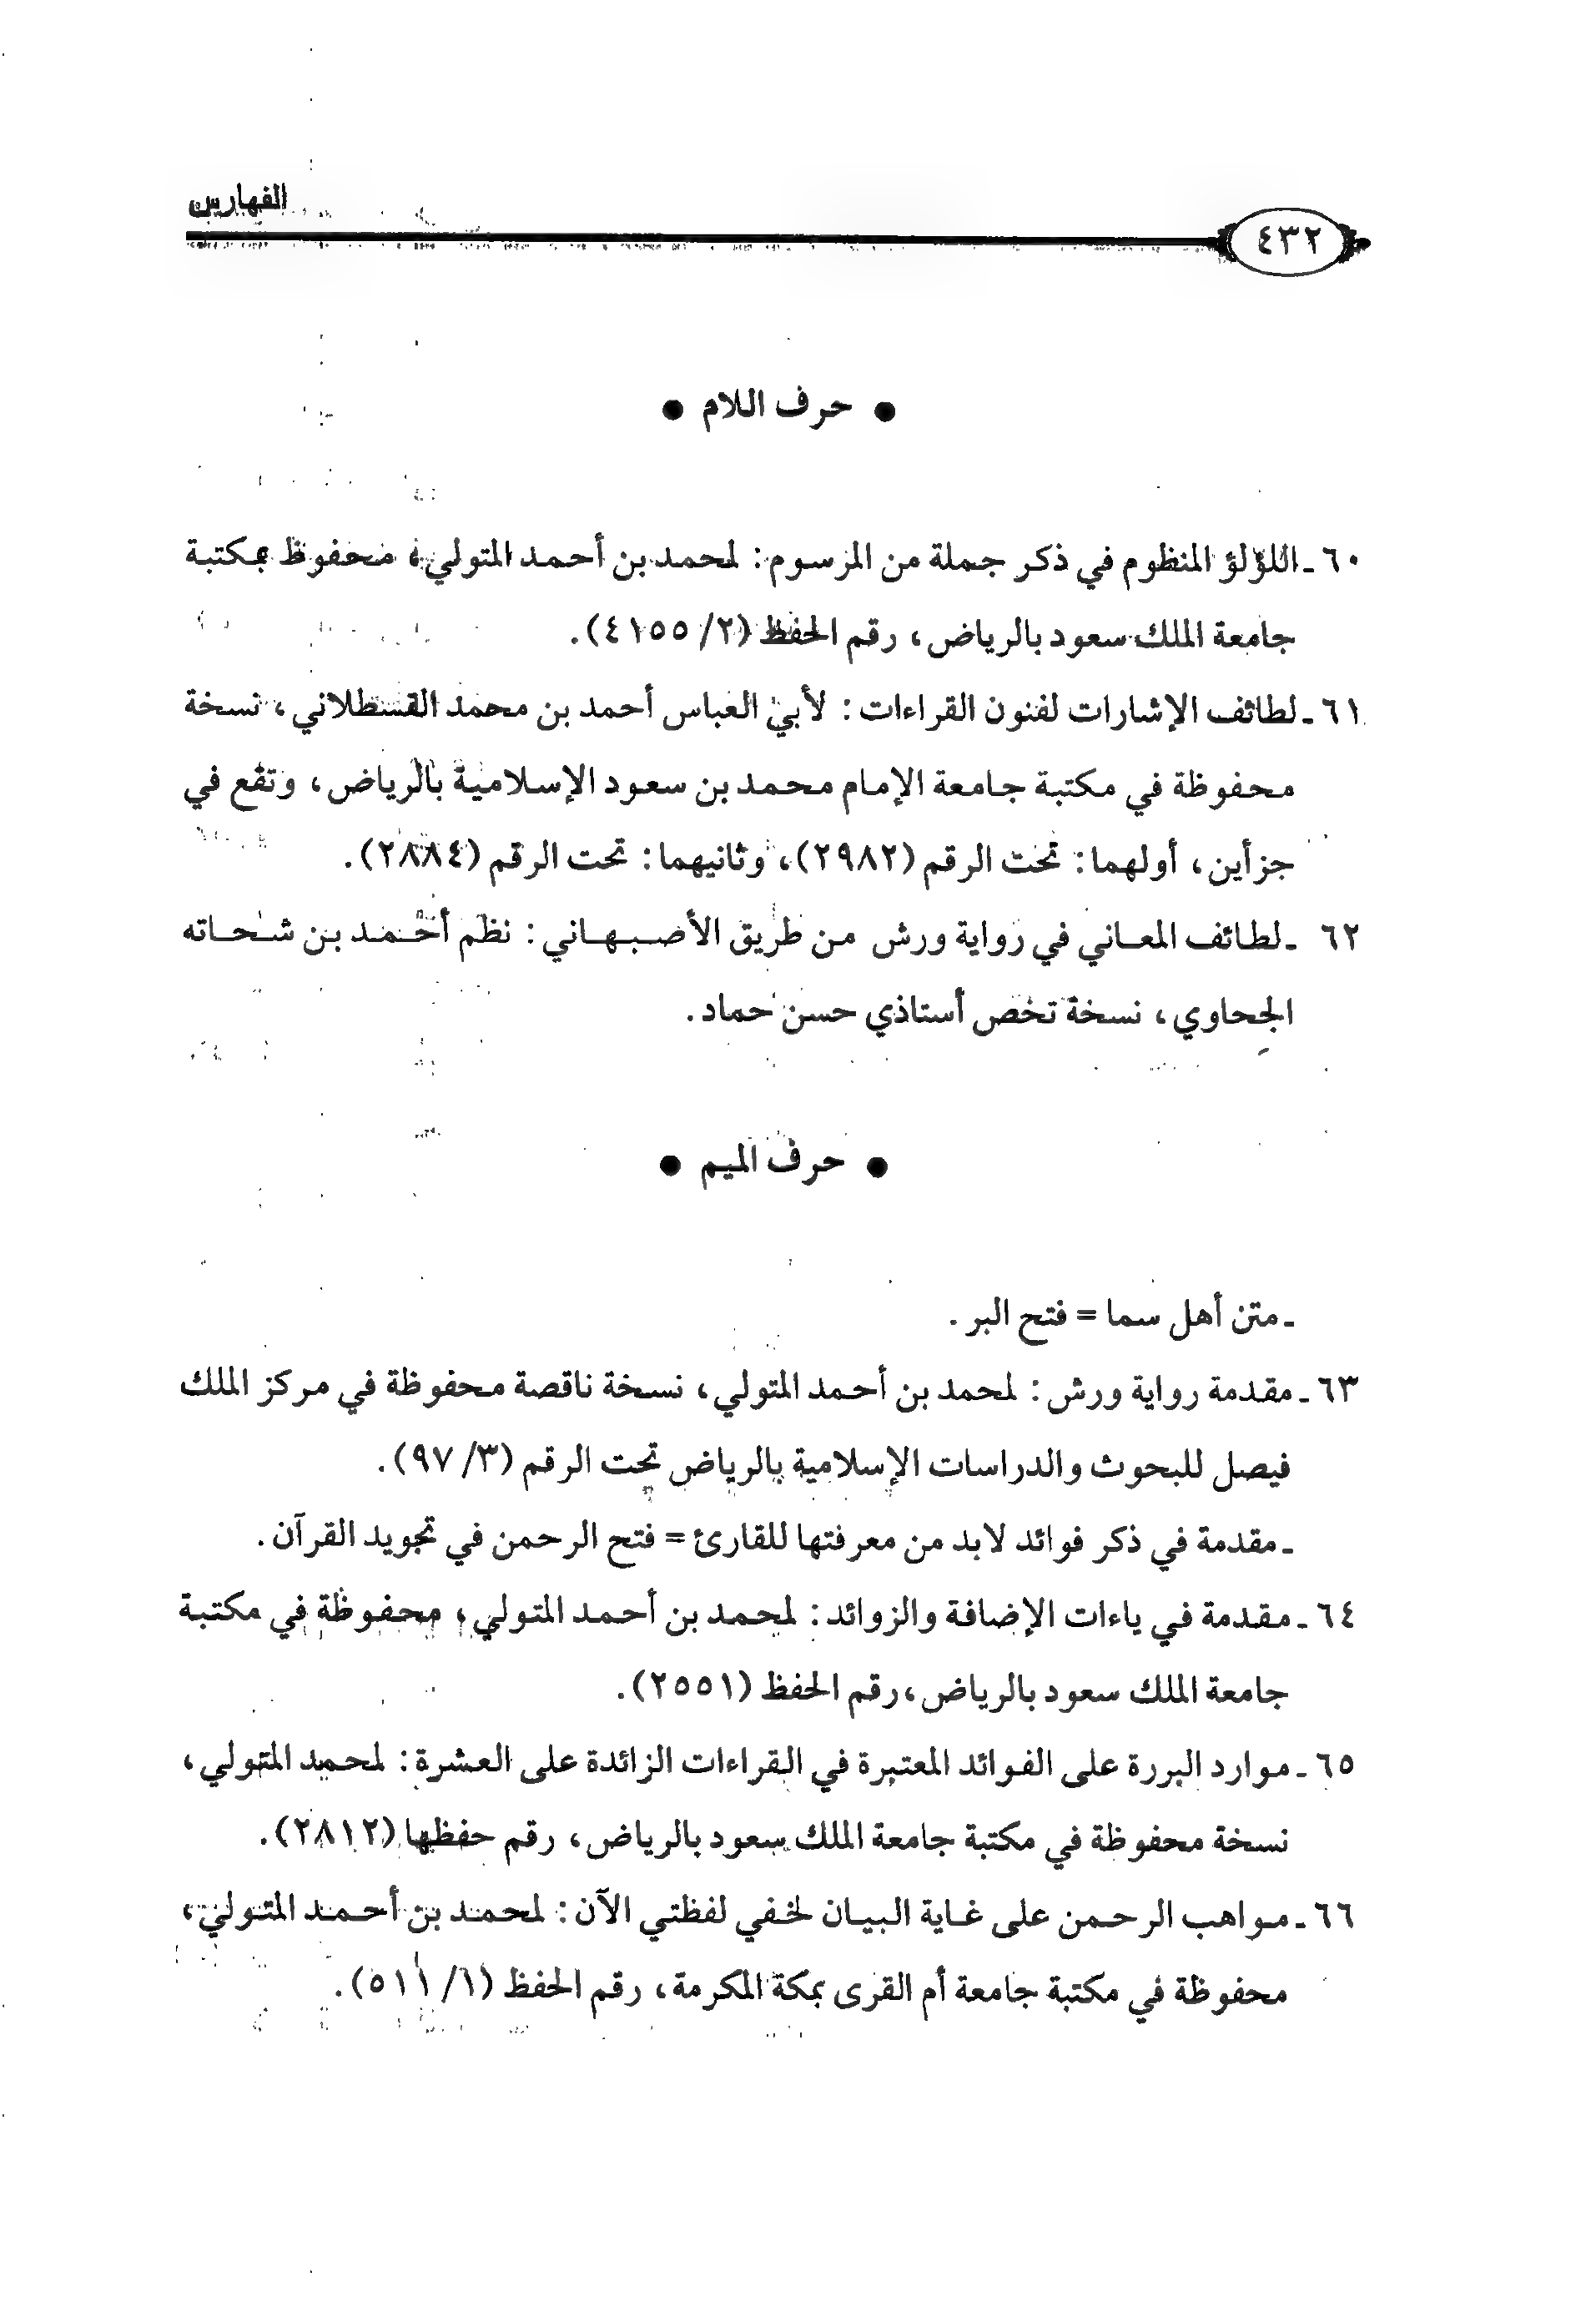 الفهارس
٤٣٢
● حرف اللام ●
٦٠ ـ اللؤلؤ المنظوم في ذكر جملة من المرسوم: لمحمد بن أحمد المتولي، محفوظ بمكتبة
جامعة الملك سعود بالرياض، رقم الحفظ (٢/ ٤١٥٥).
٦١ ـ لطائف الإشارات لفنون القراءات: لأبي العباس أحمد بن محمد القسطلاني، نسخة
محفوظة في مكتبة جامعة الإمام محمد بن سعود الإسلامية بالرياض، وتقع في
جزأين، أولهما: تحت الرقم (٢٩٨٢)، وثانيهما: تحت الرقم (٢٨٨٤).
٦٢ ـ لطائف المعاني في رواية ورش من طريق الأصبهاني: نظم أحمد بن شحاته
الجحاوي، نسخة تخص أستاذي حسن حماد.
● حرف الميم ●
ـ متن أهل سما = فتح البر.
٦٣ ـ مقدمة رواية ورش: لمحمد بن أحمد المتولي، نسخة ناقصة محفوظة في مركز الملك
فيصل للبحوث والدراسات الإسلامية بالرياض تحت الرقم (٣/ ٩٧).
ـ مقدمة في ذكر فوائد لابد من معرفتها للقارئ = فتح الرحمن في تجويد القرآن.
٦٤ ـ مقدمة في ياءات الإضافة والزوائد: لمحمد بن أحمد المتولي، محفوظة في مكتبة
جامعة الملك سعود بالرياض، رقم الحفظ (٢٥٥١).
٦٥ ـ موارد البررة على الفوائد المعتبرة في القراءات الزائدة على العشرة: لمحمد المتولي،
نسخة محفوظة في مكتبة جامعة الملك سعود بالرياض، رقم حفظها (٢٨١٢).
٦٦ ـ مواهب الرحمن على غاية البيان لخفي لفظتي الآن: لمحمد بن أحمد المتولي،
محفوظة في مكتبة جامعة أم القرى بمكة المكرمة، رقم الحفظ (١/ ٥١١).